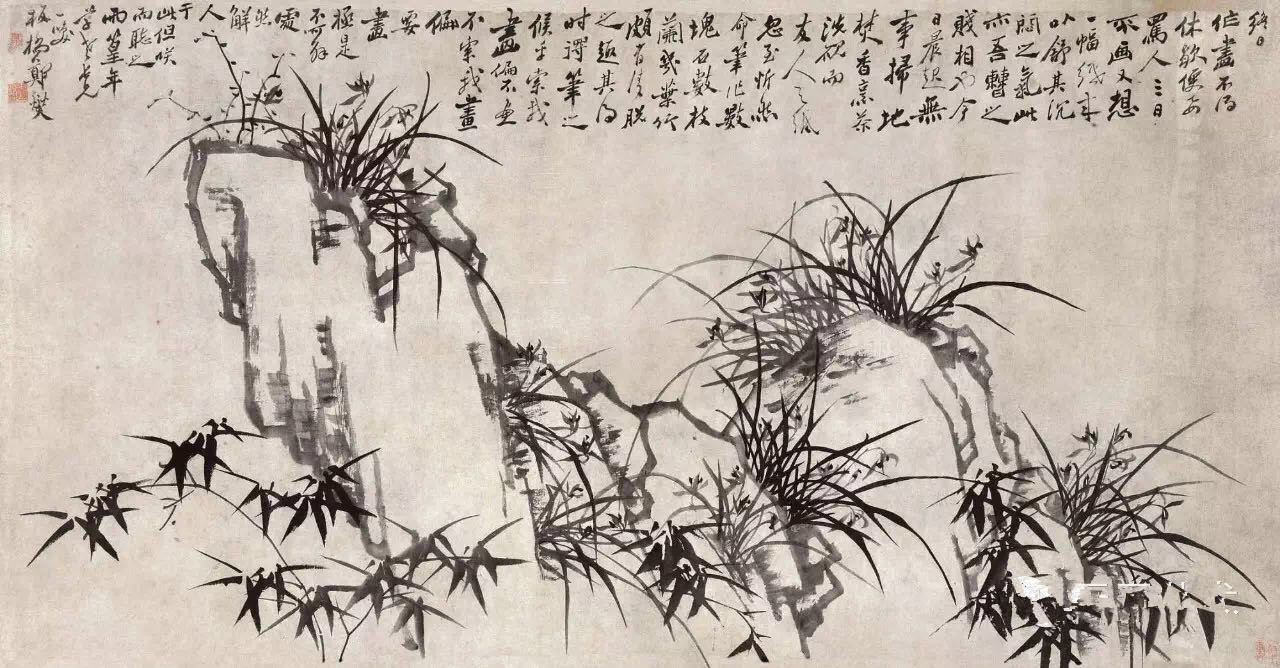 終日
作畫不得
休歇便要
罵人三日
不画又想
一幅紙来
以舒其沉
悶之氣此
亦吾輩之
賤相也今
日晨起無
事掃地
焚香烹茶
洗硯而
友人之紙
忽至忻然
命筆作數
塊石數枝
蘭幾葉竹
頗有清脱
之趣其得
時得筆之
候乎索我
畫偏不畫
不索我畫
偏
要
畫
極是
不可解
處
然
解
人
于
此但咲
而聽之
雨篁年
學老兄
一咲
板橋鄭燮